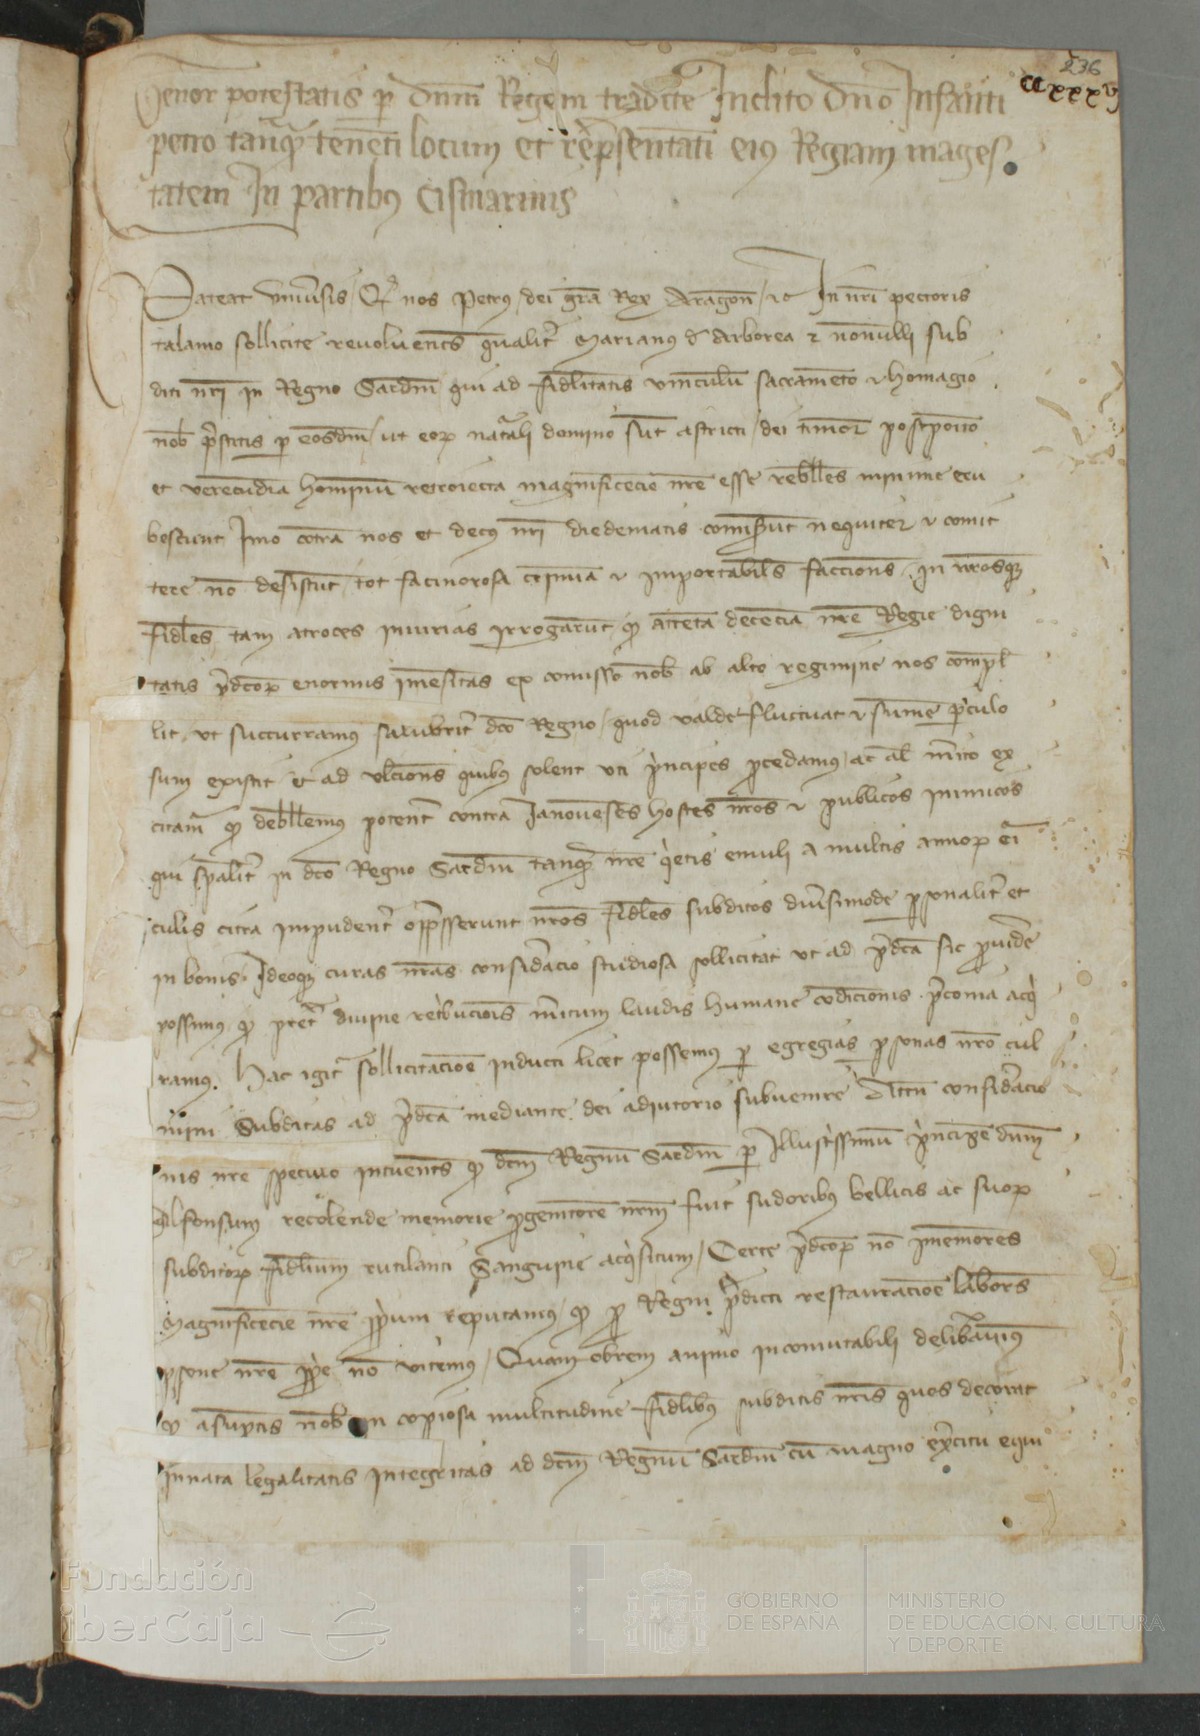 236
ccxxxvj
Tenor potestatis p dnm Regem tradite Inclito dno Infanti
petro tanq tenenti locum et repsentati eius Regiam mages
tatem In partibus Cismarinis
Pateat vniusis / Q nos Petrus dei gra Rex Aragon / etc In nri pectoris
talamo sollicite reuoluentes qualit Marianus d Arborea et nonnulli sub
diti nri in Regno Sardin qui ad fidlitatis vinculu sacrameto et homagio
nob pstitis p eosdm / ut eor naturali domino sut astricti / dei timor postposito
et verecundia hominu retroiecta magnificecie nre esse reblles minime eru
bescunt Imo contra nos et decus nri diedematis comiserut nequiter et comit
tere no desistut / tot facinorosa crimina et importabiles facciones / in nrosq
fidles tam atroces iniurias irrogarut q attenta decencia nre Regie digni
tatis pdcor enormis imensitas ex comisso nob ab alto regimine nos compel
lit / vt succurramus salubrit dco Regno / quod valde fluctuat et sume piculo
sum existit et ad vlciones quibus solent vti principes pcedamus / ac al mito ex
citam q debllemus potent contra Ianoueses hostes nros et publicos inimicos
qui spalit in dco Regno Sardin tanq nre qetis emuli a multis annor cir
culis citra impudent opsserunt nros fidles subditos diusimode psonalit et
in bonis . Ideoq curas nras consideracio studiosa sollicitat ut ad pdca sic puide
possimus q pret diuine retribucionis mitum laudis humane condicionis pconia acq
ramus . Hac igit sollicitacione inducti licet possemus p egregias psonas nro cul
mini subditas ad pdca mediante dei adiutorio subuenire Attn consideracio
nis nre speculo intuentes q dcm Regnu Sardin p Illustissimu principe dnm
Alfonsum recolende memorie pgenitore nrm fuit sudoribus bellicis ac suor
subditor fidlium rutilanti sanguine acqsitum / Certe pdcor no imemores
magnificecie nre ppium reputamus / q p Regni pdicti restauracione labores
psone nre ppe no vitemus / Quam obrem animo incomutabili deliberauimus
q asuptis nob in copiosa multitudine fidlibus subditis nris quos decorat
innata legalitatis integritas ad dcm Regnu Sardin cu magno exercitu equi
Fundación
iberCaja
GOBIERNO
DE ESPAÑA
MINISTERIO
DE EDUCACIÓN, CULTURA
Y DEPORTE